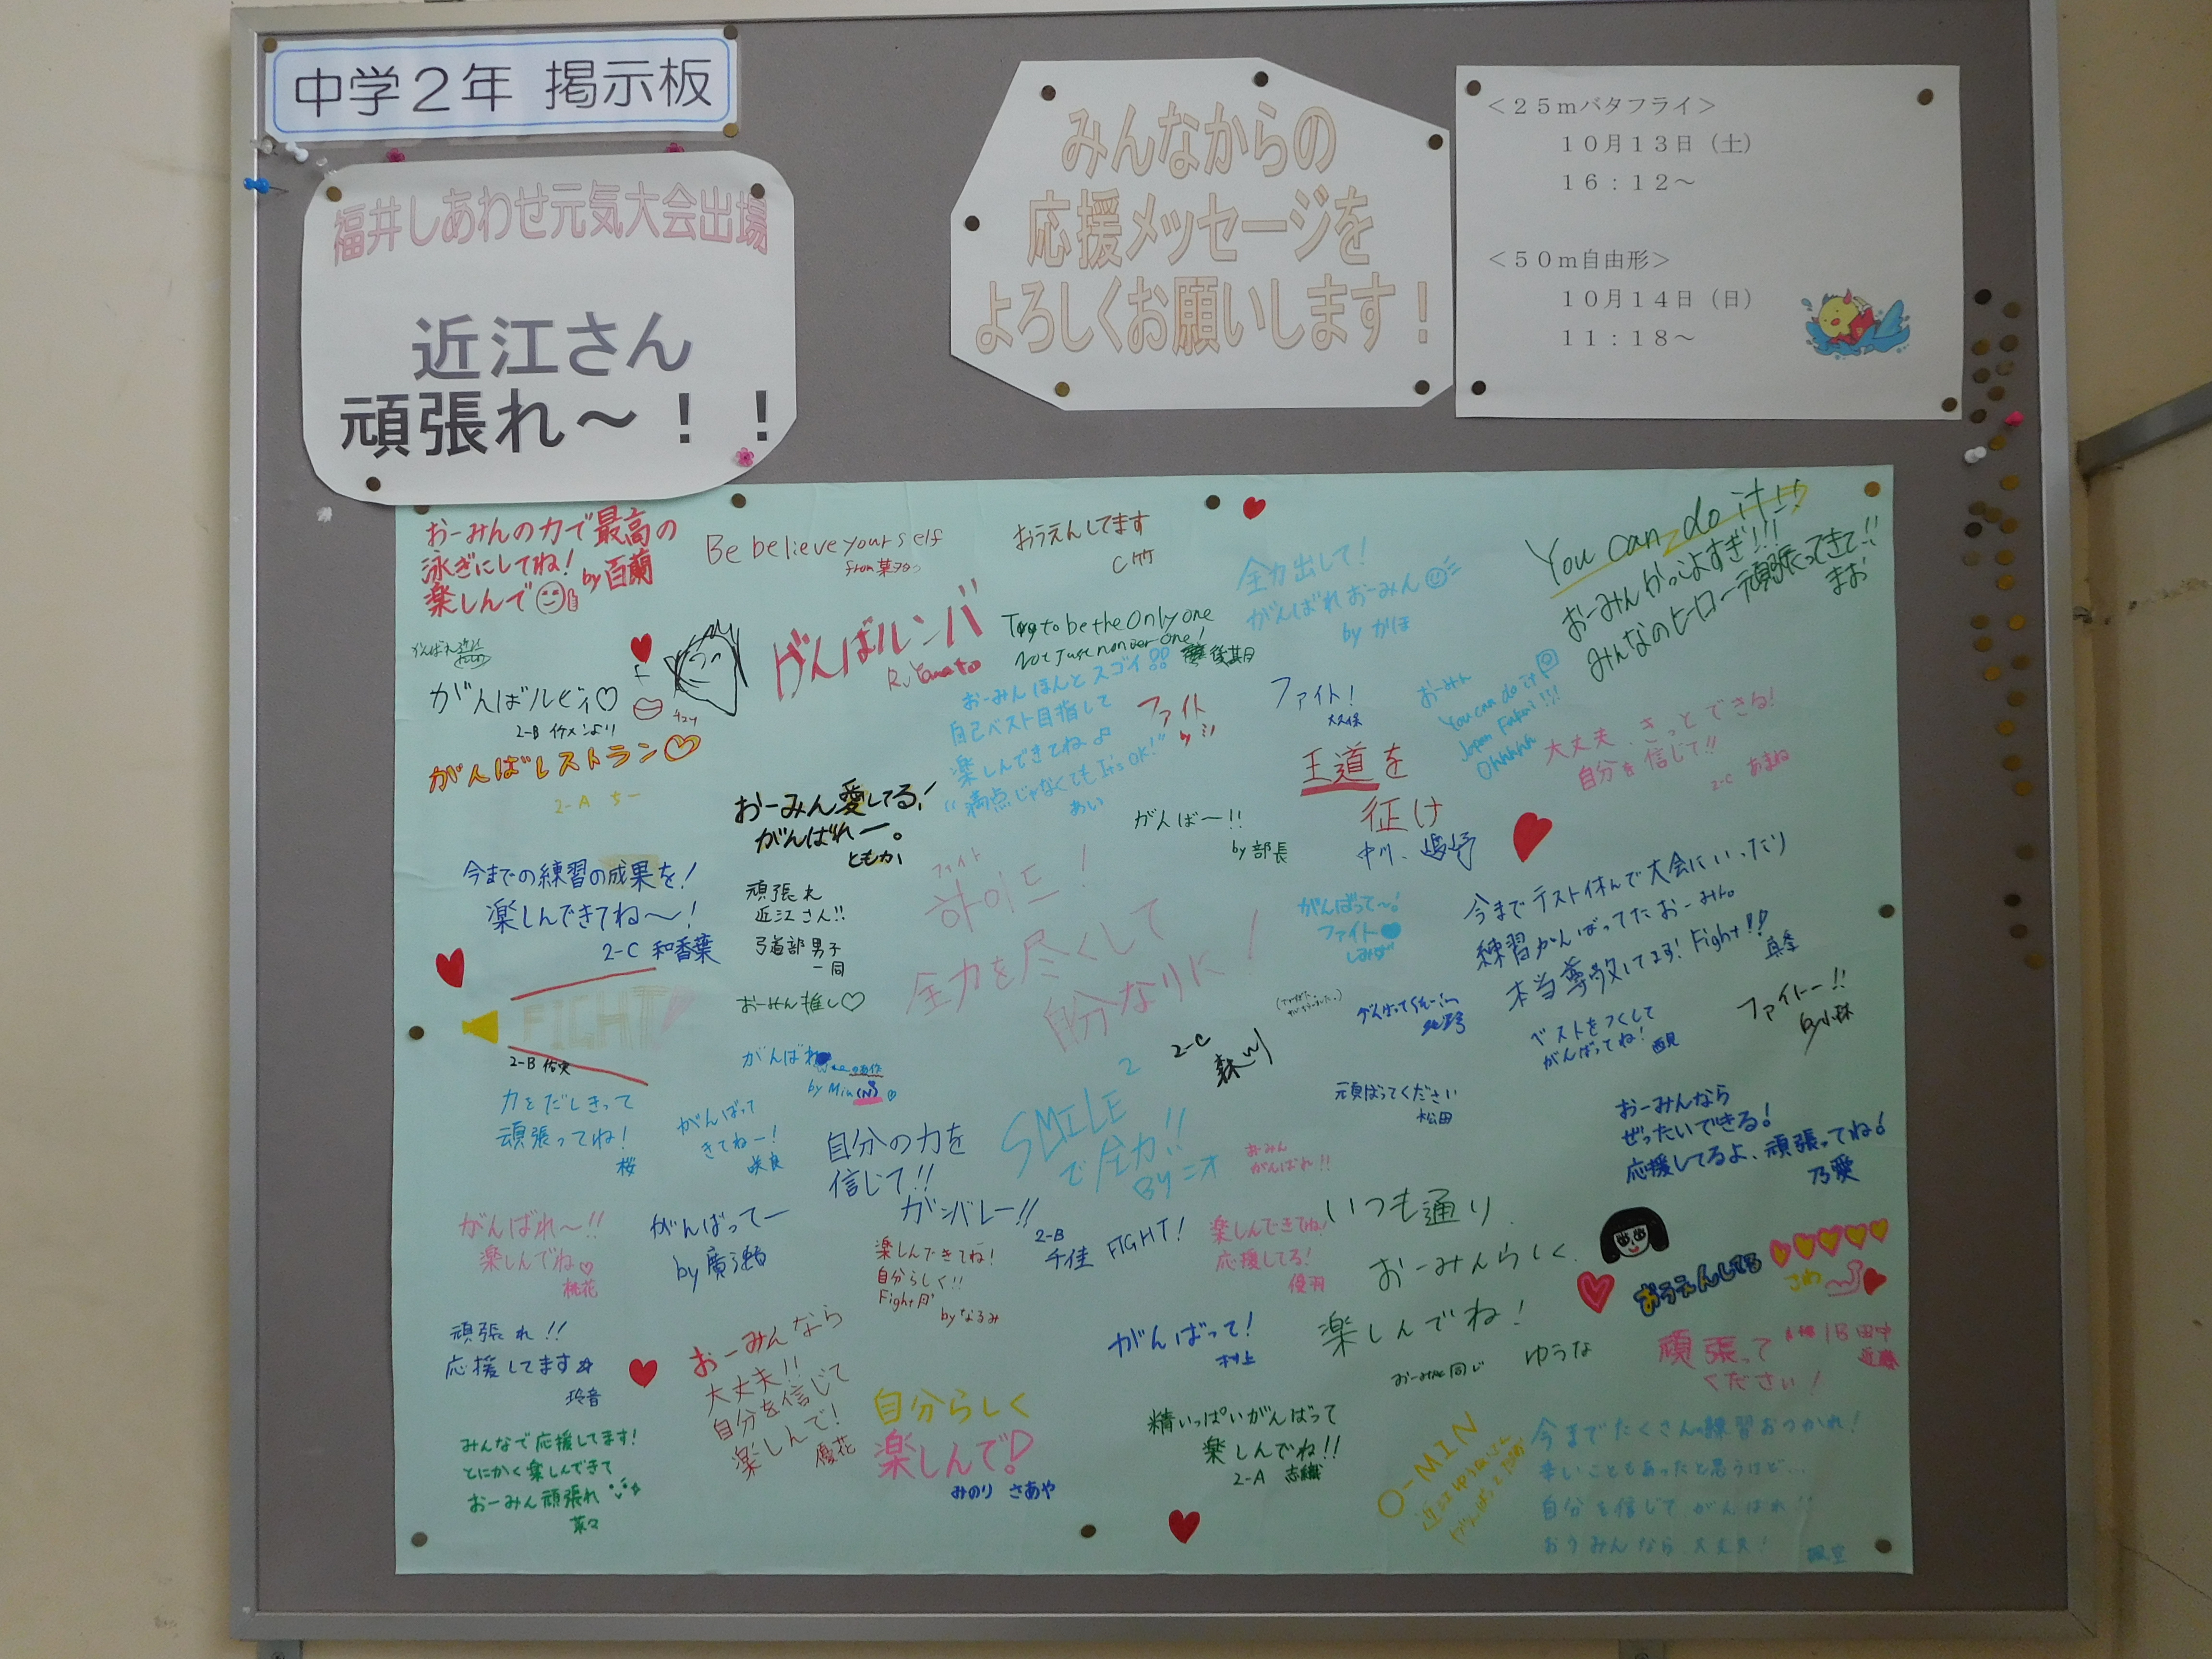 中学２年 掲示板
福井しあわせ元気大会出場
近江さん
頑張れ～！！
みんなからの
応援メッセージを
よろしくお願いします！
＜２５ｍバタフライ＞
１０月１３日（土）
１６：１２～
＜５０ｍ自由形＞
１０月１４日（日）
１１：１８～
おーみんの力で最高の
泳ぎにしてね！
楽しんで by百蘭
Be believe yourself
from
おうえんしてます
全力出して！
がんばれおーみん
by かほ
You can do it!!
おーみんかっこよすぎ!!!
みんなのヒーロー頑張ってきてー!!
まお
がんばルビィ♡
2-B イケメンより
がんばルンバ
R. Yamato
Try to be the Only one
Not Just number one!
おーみんほんとスゴイ!!
自己ベスト目指して
楽しんできてね♪
"満点じゃなくても It's OK!"
あい
ファイト
ファイト！
大久保
おーみん
You can do it
Japan Fukui!!!
Ohhhhh
大丈夫、きっとできる！
自分を信じて!!
2-C あまね
がんばレストラン♡
2-A ちー
王道を
征け
中川、嶋崎
おーみん愛してる！
がんばれー。
ともか
がんばー!!
by 部長
今までの練習の成果を！
楽しんできてね～！
2-C 和香葉
頑張れ
近江さん!!
弓道部男子
一同
ファイト
하이드！
全力を尽くして
自分なりに！
がんばって～！
ファイト
しみず
今までテスト休んで大会にいったり
練習がんばってたおーみん。
本当尊敬してます！ Fight!!
FIGHT
2-B 佑実
おーみん推し♡
2-C
森川
ベストをつくして
がんばってね！
西見
ファイトー!!
By小林
がんばれ
by Miu
力をだしきって
頑張ってね！
桜
がんばって
きてねー！
咲良
自分の力を
信じて!!
SMILE²
で全力!!
BY ニオ
頑ばってください
松田
おーみん
がんばれ!!
おーみんなら
ぜったいできる！
応援してるよ、頑張ってね！
乃愛
がんばれ～!!
楽しんでね♡
桃花
がんばってー
by 廣瀬
ガンバレー!!
2-B
千佳 FIGHT!
楽しんできてね！
自分らしく!!
Fight
by なるみ
楽しんできてね！
応援してる！
優羽
いつも通り
おーみんらしく
楽しんでね！
ゆうな
おうえんしてる
さわ
頑張れ!!
応援してます☆
玲音
おーみんなら
大丈夫!!
自分を信じて
楽しんで！
優花
がんばって！
村上
頑張って
ください！
1B 田中
近藤
自分らしく
楽しんで！
みのり さあや
精いっぱいがんばって
楽しんでね!!
2-A 志織
みんなで応援してます！
とにかく楽しんできて
おーみん頑張れ
菜々
O-MIN
今までたくさん練習おつかれ！
辛いこともあったと思うけど…
自分を信じてがんばれ!!
おうみんなら大丈夫！